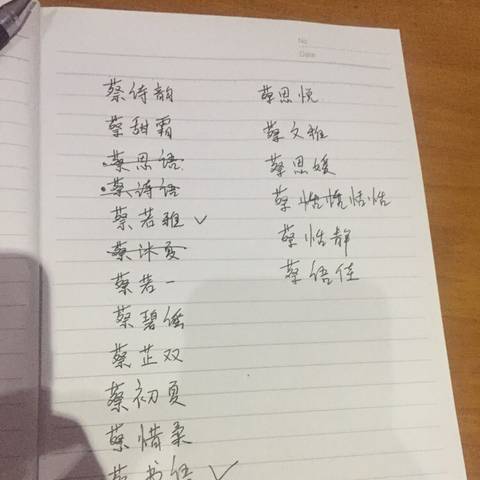 No
Date
蔡诗韵
蔡甜霜
蔡思语
蔡诗语
蔡若雅 ✓
蔡沐夏
蔡若一
蔡碧
蔡芷双
蔡初夏
蔡惜柔
蔡思悦
蔡文雅
蔡思媛
蔡恬
蔡恬静
蔡语佳